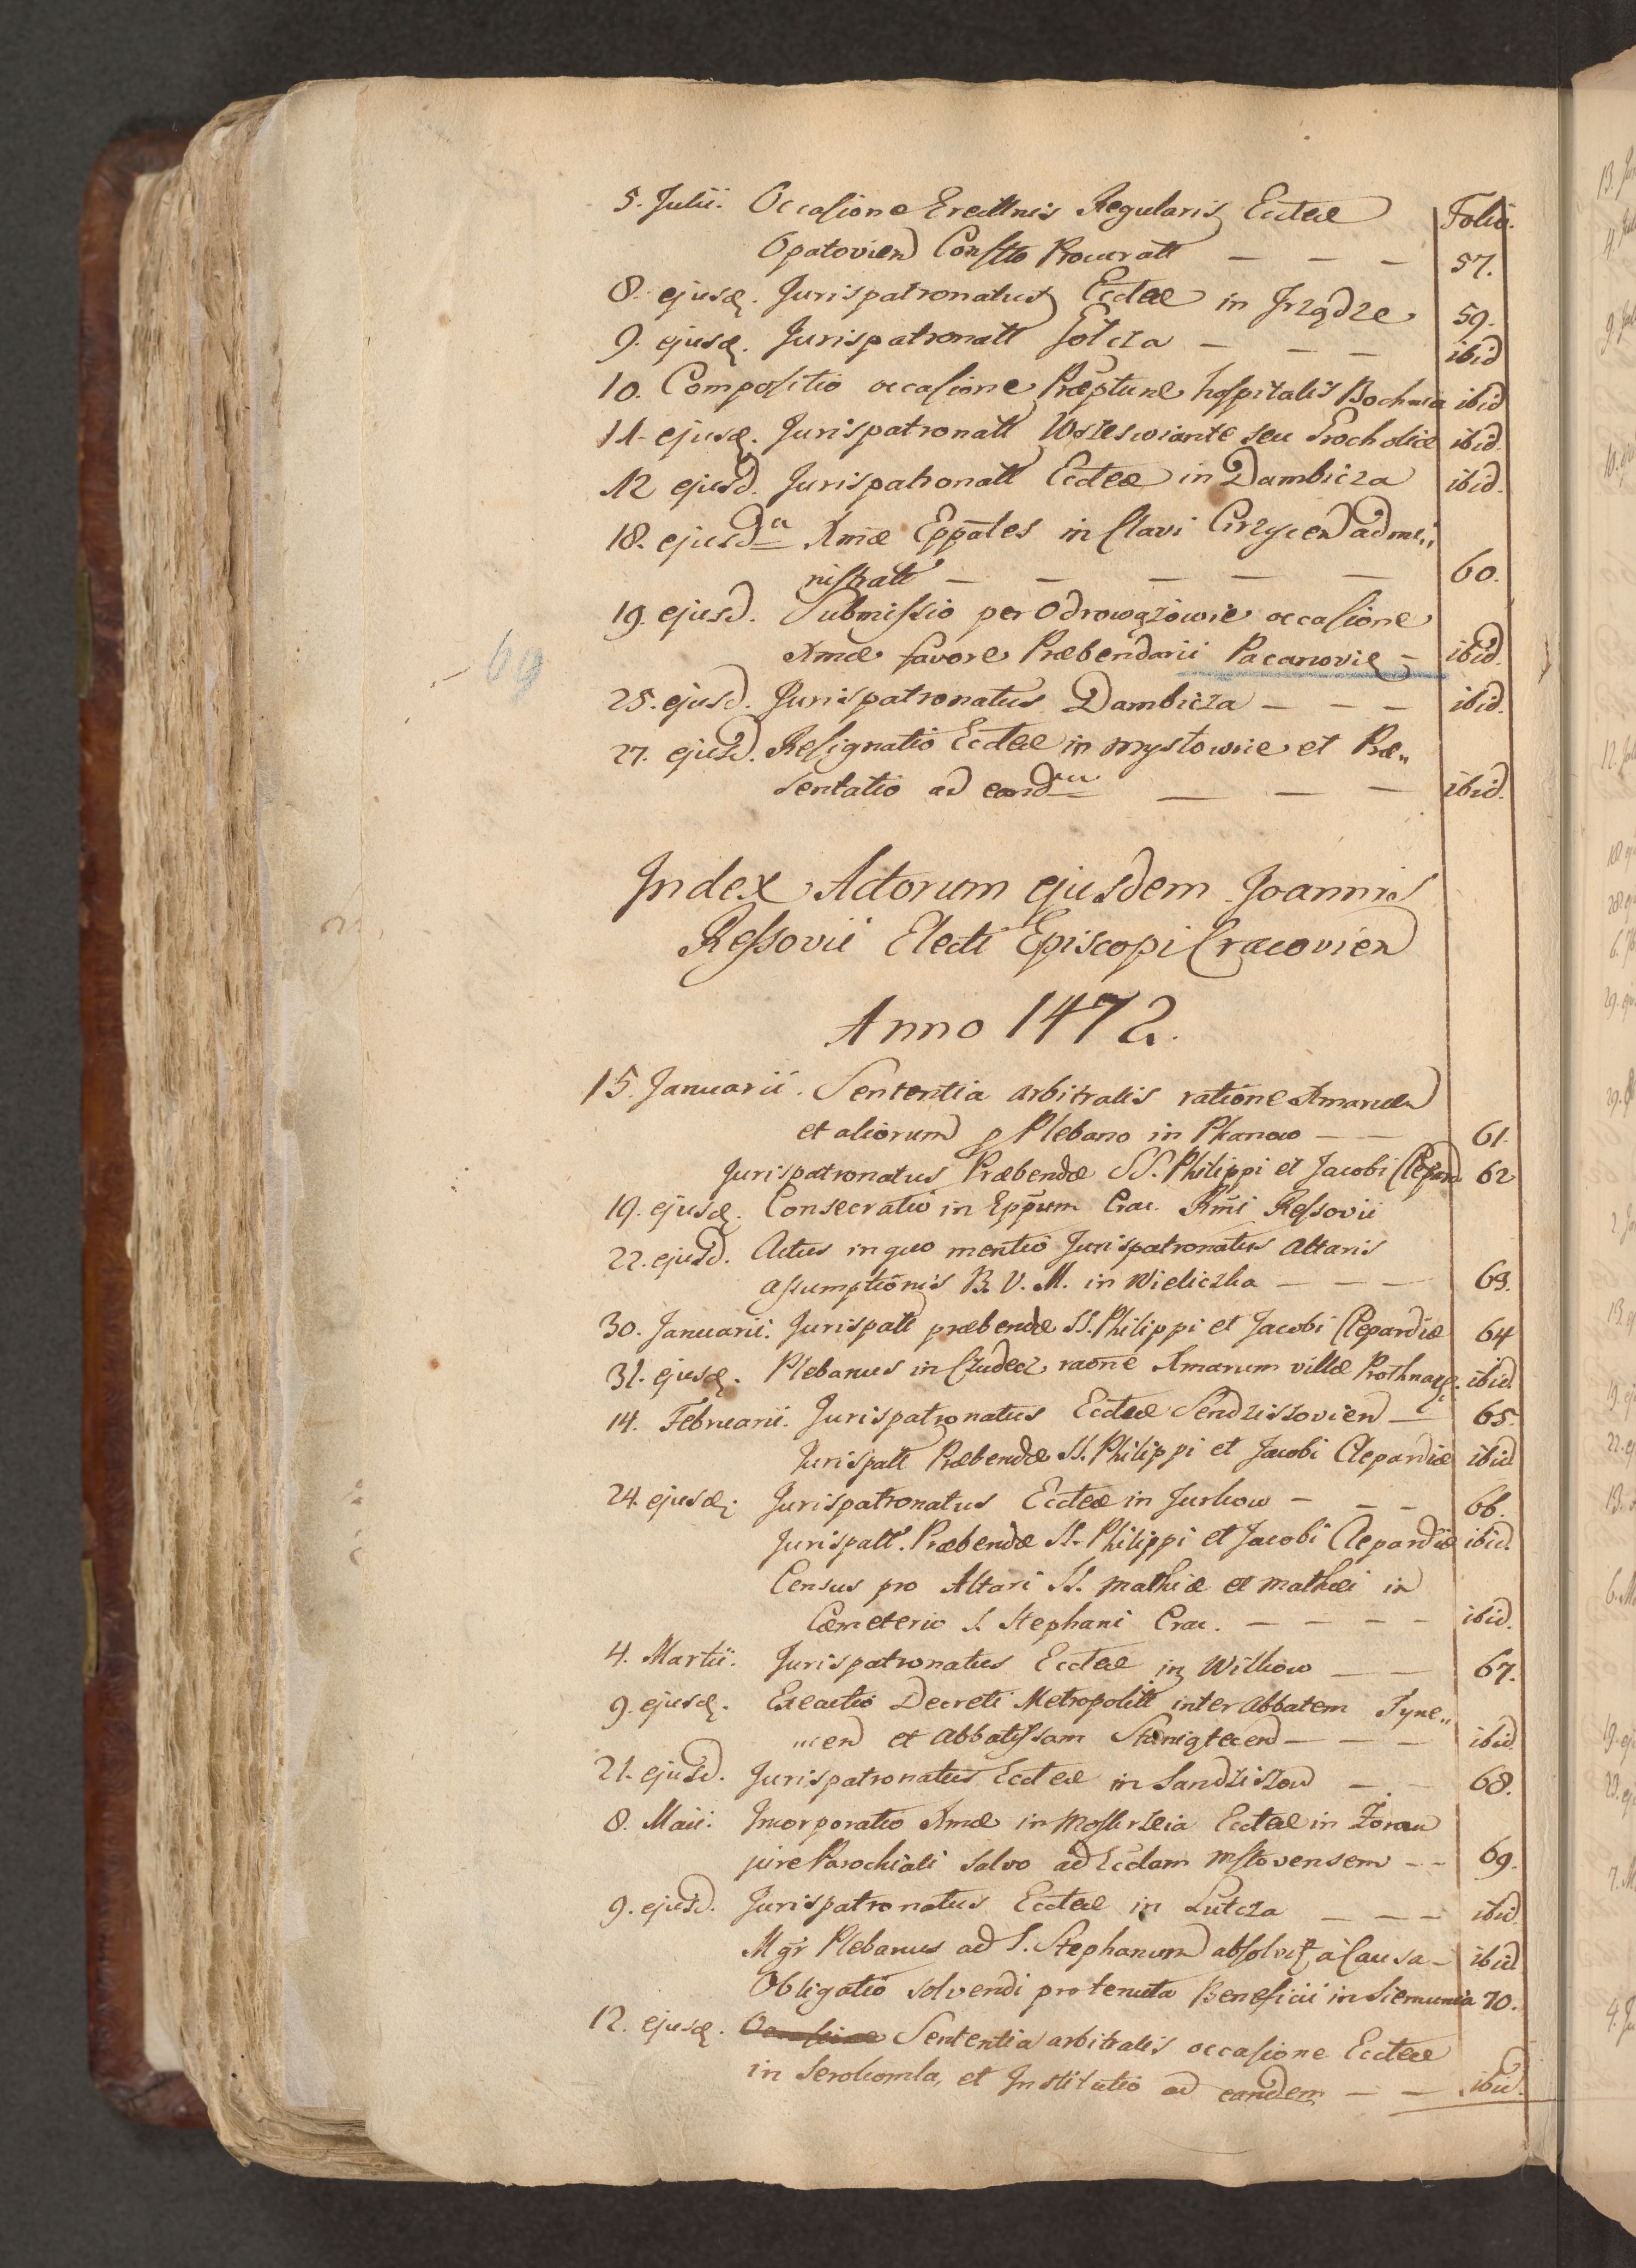 Folio.
5. Julii. Occasione Erectnis Regularis Ecclae
Opatovien Constto Procuratt — — — 57.
8. ejusd. Jurispatronatus Ecclae in Irządze 59.
9. ejusd. Jurispatronatt Łotcza — — — ibid
10. Compositio occasione Præpturæ hospitalis Bochnia ibid
11. ejusd. Jurispatronatt seu ibid.
12 ejusd. Jurispatronatt Ecclæ in Dambicza ibid.
18. ejusd Xmæ Eppales in Clavi admi„
nistratt — — — — — 60.
19. ejusd. Submissio per Odrowązowie occasione
Xmæ favore Præbendarii Pacanoviæ — ibid.
- 69
25. ejusd. Jurispatronatus Dambicza — — — ibid.
27. ejusd. Resignatio Ecclæ in Mysłowie et Præ„
sentatio ad eand — — — ibid.
Index Actorum ejusdem Joannis
Ressovii Electi Episcopi Cracovien
Anno 1472.
15. Januarii. Sententia arbitralis ratione Xmarum
et aliorum p Plebano in Pkanow — — 61.
Jurispatronatus Præbendæ SS. Philippi et Jacobi Clepard 62
19. ejusd. Consecratio in Eppum Crac. Rmi Ressovii
22. ejusd. Actus in quo mentio Jurispatronatus Altaris
assumptionis B. V. M. in Wieliczka — — — 63.
30. Januarii. Jurispatt præbendæ SS. Philippi et Jacobi Clepardiæ 64
31. ejusd. Plebanus in Czudecz raone Xmarum villæ ibid.
14. Februarii. Jurispatronatus Ecclæ Sendziszovien — 65.
Jurispatt Præbendæ SS. Philippi et Jacobi Clepardiæ ibid
24. ejusd. Jurispatronatus Ecclæ in Jurkow — — — 66.
Jurispatt. Præbendæ SS. Philippi et Jacobi Clepardiæ ibid.
Census pro Altari SS. Mathiæ et Mathæi in
Cæmeterio S. Stephani Crac. — — — — ibid.
4. Martii. Jurispatronatus Ecclæ in Wilkow — — 67.
9. ejusd. Exactio Decreti Metropolitt inter Abbatem Tyne„
cen et Abbatissam Staniątecen — — — ibid.
21. ejusd. Jurispatronatus Ecclæ in Sandziszow — — 68.
8. Maii. Incorporatio Xmæ in Ecclæ in Zoraw
jure Parochiali salvo ad Ecclam Mstovensem — — 69.
9. ejusd. Jurispatronatus Ecclæ in Lutcza — — — ibid
Mgr Plebanus ad S. Stephanum absolvit à Causa — ibid
Obligatio solvendi pro tenuta Beneficii in Siemunia 70.
12. ejusd. Occasione Sententia arbitralis occasione Ecclæ
in Serokomla, et Institutio ad eandem — — ibid.